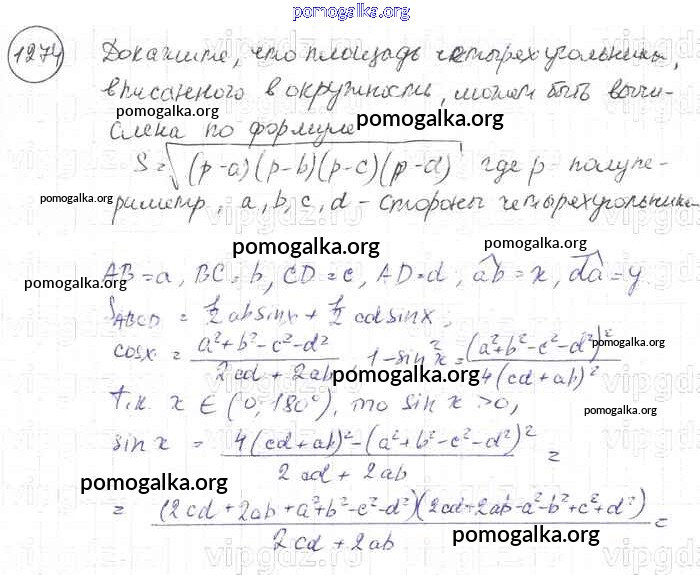 pomogalka.org
1274 Докажите, что площадь четырехугольника,
вписанного в окружности, может быть вычи-
pomogalka.org
слена по формуле
pomogalka.org
S = √(p-a)(p-b)(p-c)(p-d) где p - полупе-
pomogalka.org
риметр, a, b, c, d - стороны четырехугольника
pomogalka.org
pomogalka.org
AB = a, BC = b, CD = c, AD = d, ab = x, da = y.
pomogalka.org
S_ABCD = 1/2 ab sinx + 1/2 cd sinx,
cosx = (a²+b²-c²-d²)/(2cd+2ab), 1-sin²x = (a²+b²-c²-d²)²/4(cd+ab)²
pomogalka.org
pomogalka.org
т.к. x ∈ (0, 180°), то sin x > 0,
pomogalka.org
sin x = (4(cd+ab)²-(a²+b²-c²-d²)²)/(2cd+2ab) =
pomogalka.org
= (2cd+2ab+a²+b²-c²-d²)(2cd+2ab-a²-b²+c²+d²)/(2cd+2ab) =
pomogalka.org